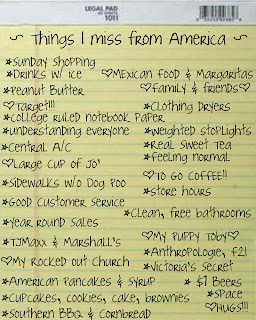 LEGAL PAD
1011
~ Things I miss from America ~
*Sunday Shopping
*Drinks w/ ice ♡Mexican Food & Margaritas
*Peanut Butter ♡Family & friends♡
♡Target!!! *Clothing Dryers
*College Ruled Notebook Paper
*Understanding everyone *Weighted Stoplights
*Central A/C *Real Sweet Tea
*feeling normal
♡Large Cup of Jo'
♡To Go Coffee!!
*Sidewalks w/o Dog Poo
*Store hours
*Good Customer Service
*Clean, free bathrooms
*Year Round Sales
♡My Puppy Toby♡
*TJMaxx & Marshall's
*Anthropologie, F21
♡My Rocked out Church
*Victoria's Secret
*American Pancakes & Syrup *$1 Beers
*Cupcakes, cookies, cake, brownies *Space
♡HUGS!!!
*Southern BBQ & Cornbread